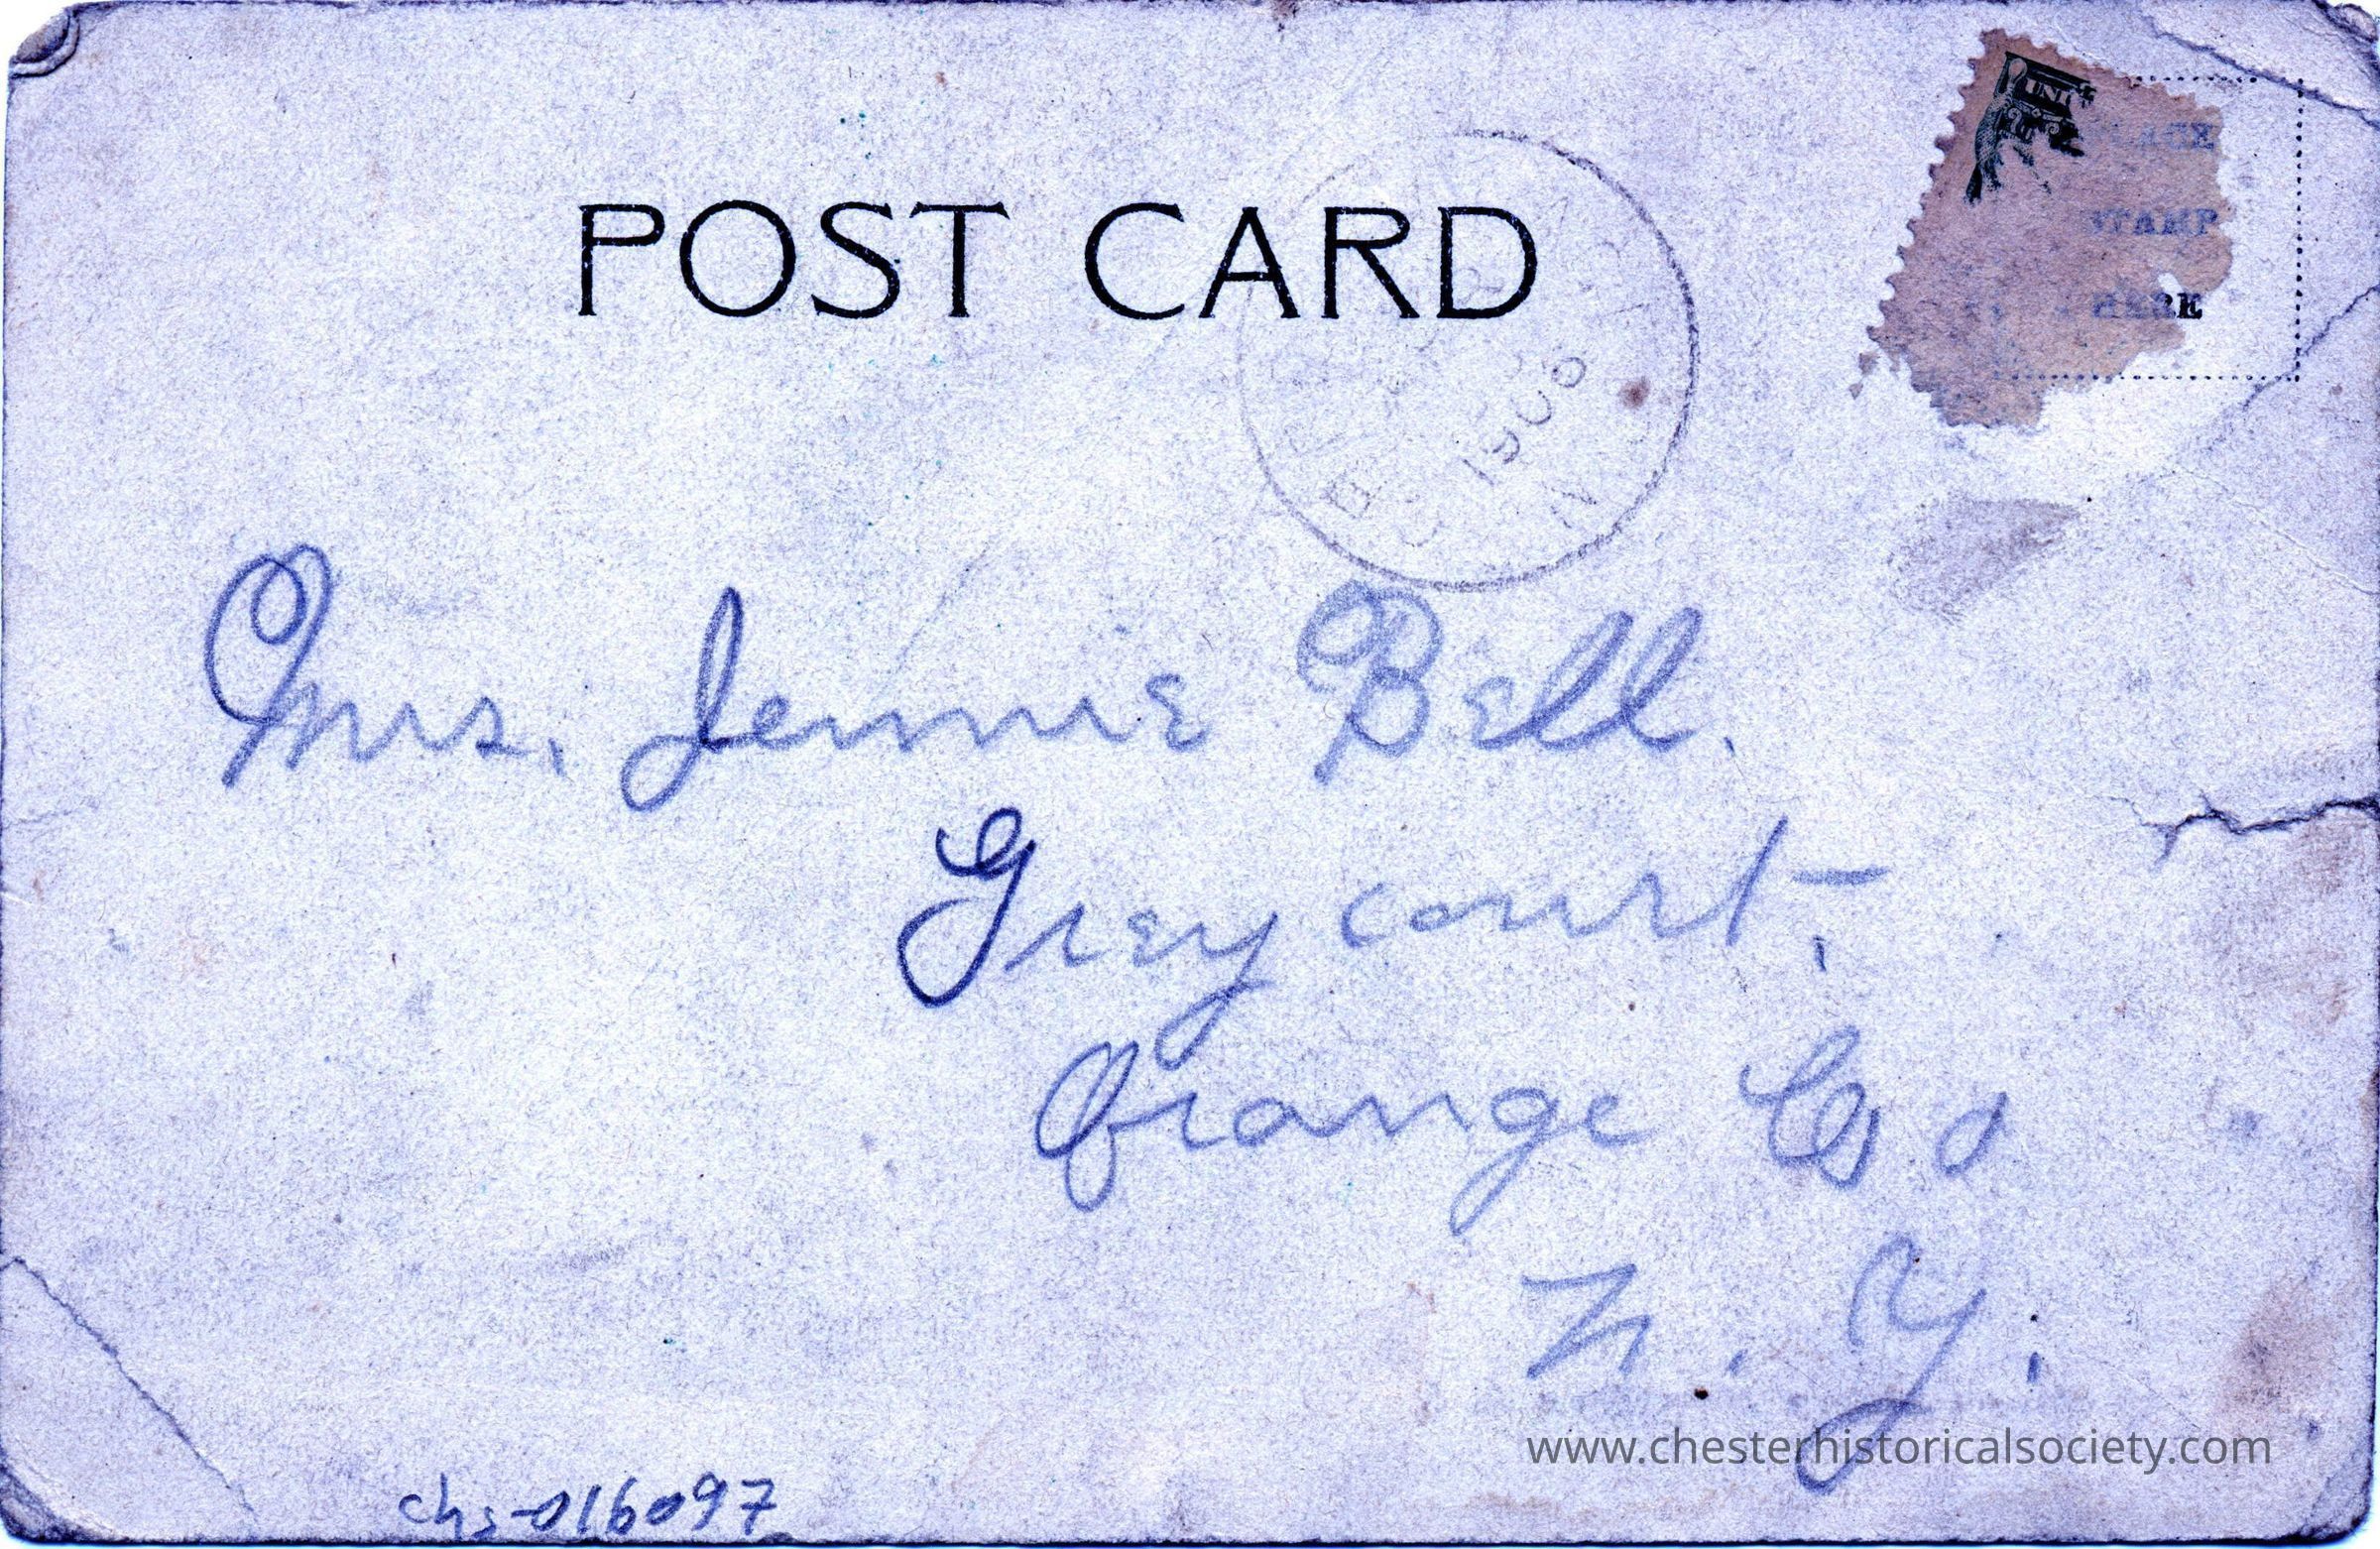 POST CARD
PLACE
STAMP
HERE
1906
Mrs. Jennie Bell.
Grey court,
Orange Co
N. Y.
www.chesterhistoricalsociety.com
chs-016097